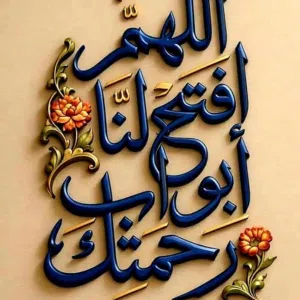 اللهمّ
افتح لنا
أبواب
رحمتك